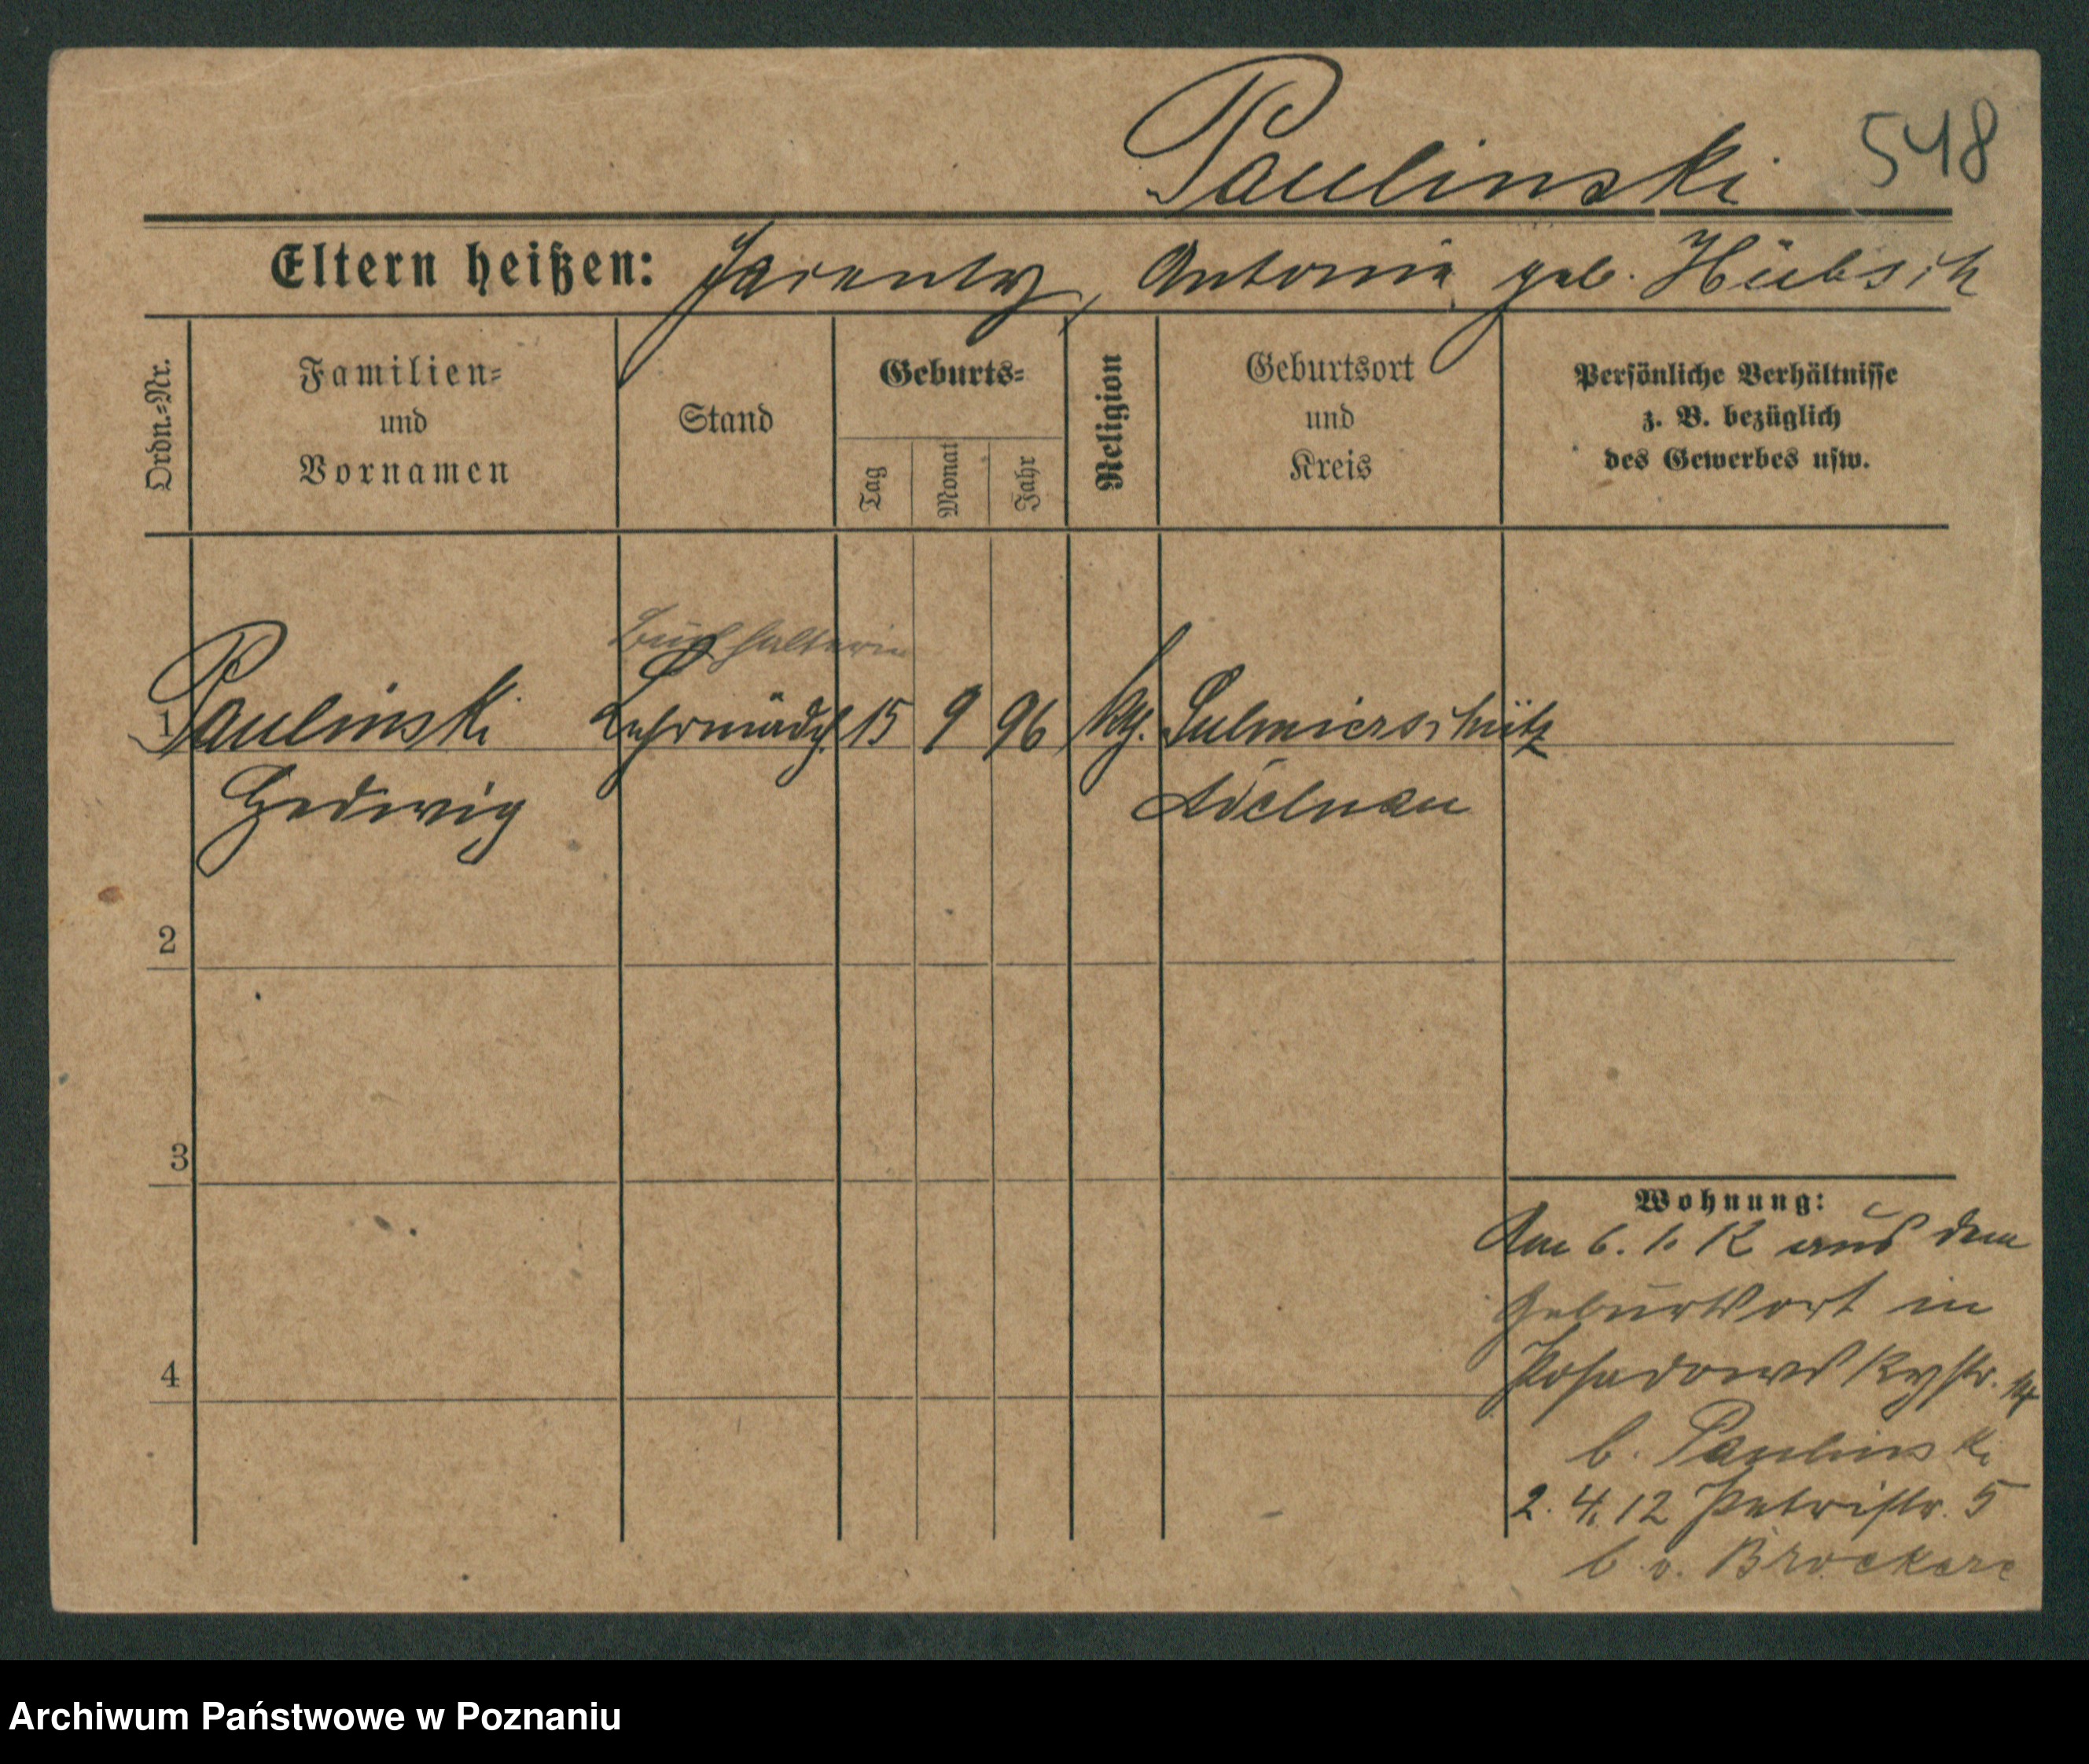 Paulinski 548
Eltern heißen: Antonia geb. Hübsch
Ordn.-Nr.
Familien-
und
Vornamen
Stand
Geburts-
Tag
Monat
Jahr
Religion
Geburtsort
und
Kreis
Persönliche Verhältnisse
z. B. bezüglich
des Gewerbes usw.
Buchhalterin
1 Paulinski Lehrmädch. 15 9 96 kth. Sulmierschütz
Hedwig Adelnau
2
3
4
Wohnung:
Am 6. 1. 12 aus dem
Geburtsort in
Posadowskystr. 14
b. Paulinski
2. 4. 12 Petristr. 5
b. v. Broekere
Archiwum Państwowe w Poznaniu